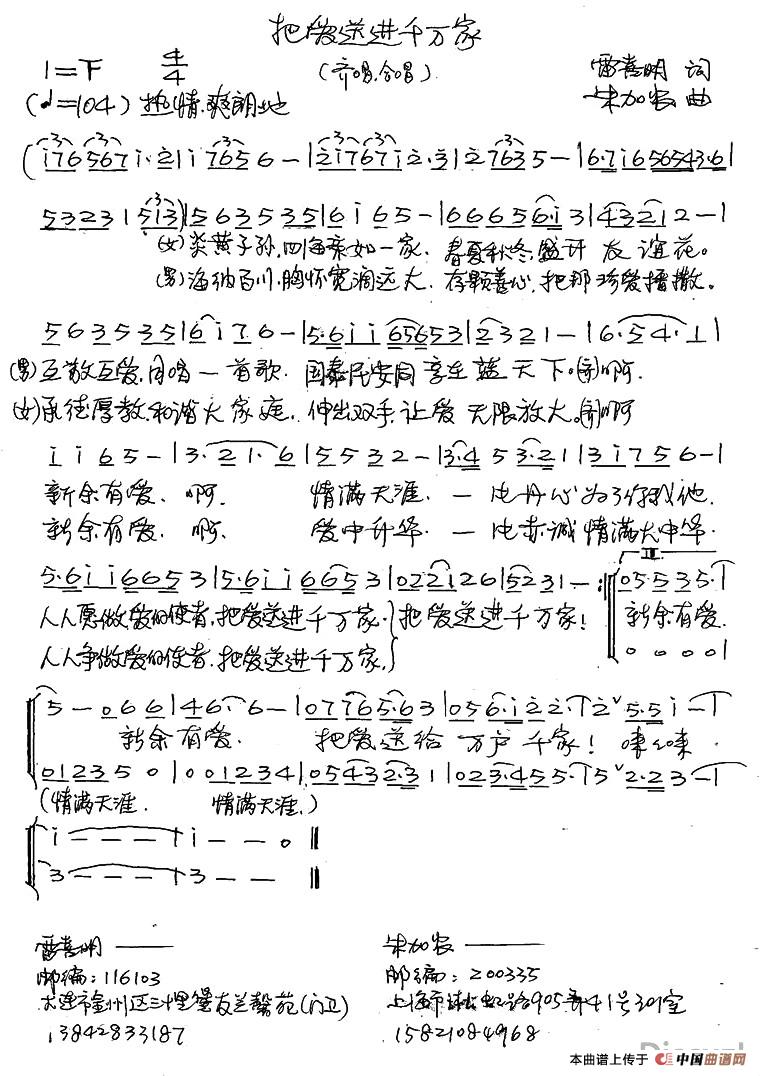 把爱送进千万家
1=F 4/4 (齐唱.合唱) 雷喜明 词
(♩=104) 热情.爽朗地 朱加农 曲
(i76 567 i·2 | i 765 6 - | 2i7 67i 2·3 | 2 763 5 - | 6·7 i6 5654 3·6 |
5323 1 513) | 563535 | 6 i 65 - | 6665 6·i 3 | 4321 2 - |
(女)炎黄子孙,四海亲如一家. 春夏秋冬,盛开 友谊花。
(男)海纳百川,胸怀宽阔远大. 存颗善心,把那珍爱播撒。
563535 | 6 i 76 - | 5·6 i i 6565 3 | 2321 - | 6·54·1 |
(男)互敬互爱,同唱一首歌. 国泰民安同享在蓝天下。(齐)啊.
(女)承德厚教,和谐大家庭. 伸出双手,让爱无限放大。(齐)啊
i i 65 - | 3·21·6 | 5532 - | 3·4 5 3·2 1 | 3 i 756 - |
新余有爱. 啊. 情满天涯. 一片丹心为了你我他.
新余有爱. 啊. 爱中升华. 一片赤诚情满大中华.
5·6 i i 6653 | 5·6 i i 6653 | 022126 | 5231 - :‖ 05535· |
人人愿做爱的使者,把爱送进千万家. 把爱送进千万家! 新余有爱.
人人争做爱的使者,把爱送进千万家, 0 0 0 0 |
5 - 066 | 46·6 - | 07765·63 | 056·i 22· | 2 ˇ 5·5 i - |
新余有爱. 把爱送给 万户千家! 嗦嗦.
01235 0 | 001234 | 05432·31 | 023·455· | 5 ˇ 2·23 - |
(情满天涯. 情满天涯.)
i - - - | i - - 0 ‖
3 - - - | 3 - - - ‖
雷喜明 —— 朱加农 ——
邮编: 116103 邮编: 200335
大连市金州区三十里堡友兰馨苑(门卫) 上海市 虹路905弄41号301室
13842833187 15821084968
本曲谱上传于 中国曲谱网